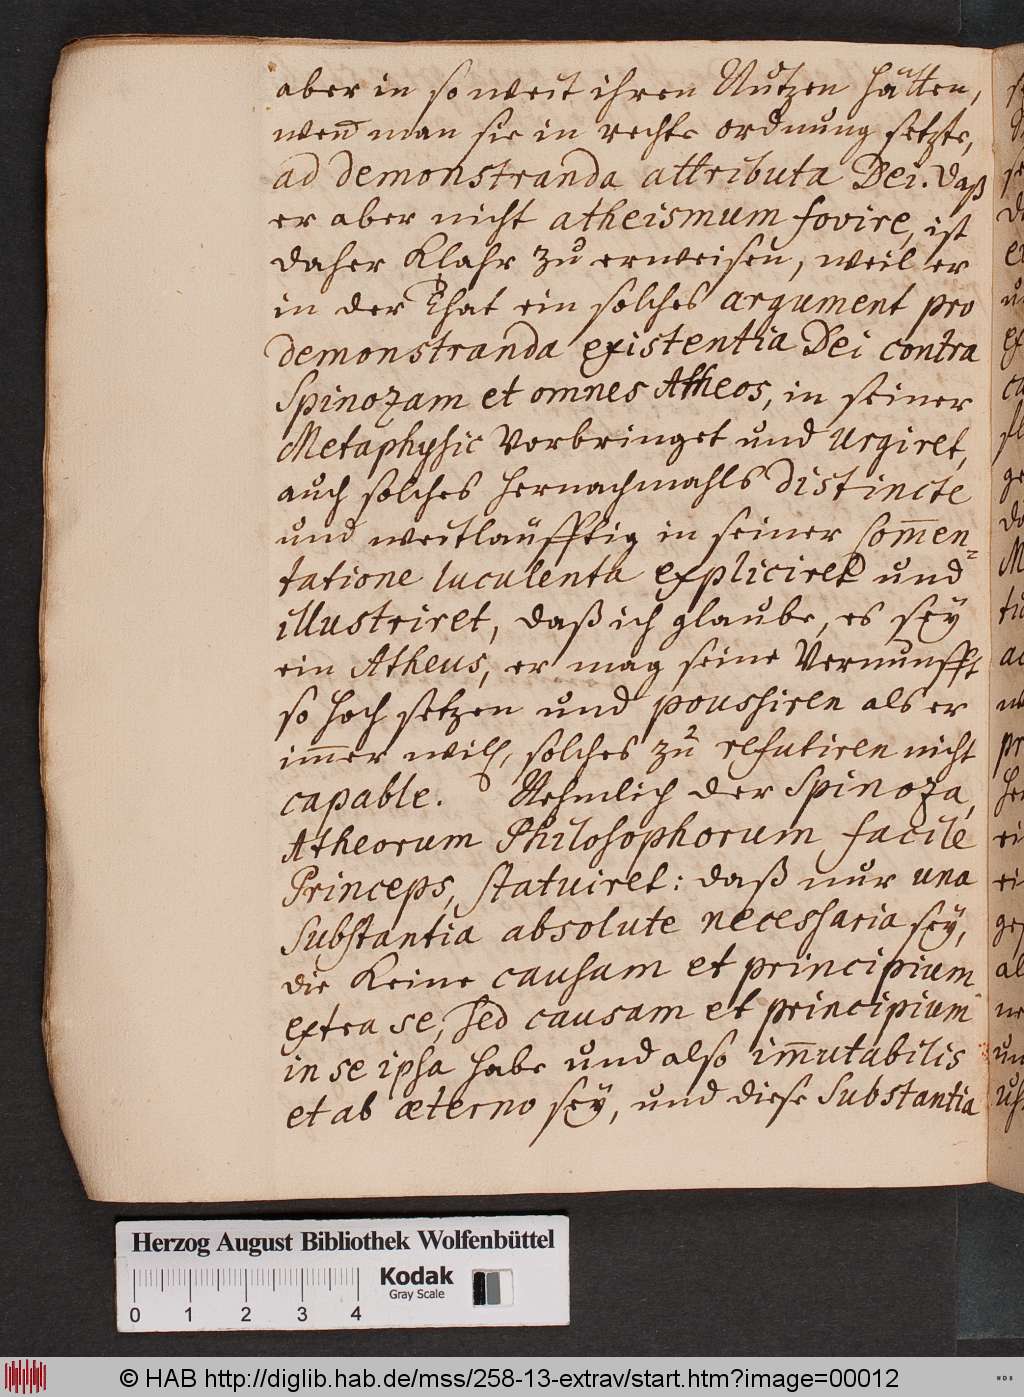 aber in so weit ihren Nutzen hätten,
weñ man sie in rechte ordnung setzte,
ad demonstranda attributa Dei. Daß
er aber nicht atheismum fovire, ist
daher Klahr zu erweisen, weil er
in der That ein solches argument pro
demonstranda existentia Dei contra
Spinozam et omnes Atheos, in seiner
Metaphysic vorbringet und urgiret,
auch solches hernachmahls distincte
und weitläufftig in seiner Com̄en=
tatione luculenta expliciret und
illustriret, daß ich glaube, es sey
ein Atheus, er mag seine Vernunfft
so hoch setzen und poussiren als er
im̄er will, solches zu refutiren nicht
capable. Nehmlich der Spinoza,
Atheorum Philosophorum facile
Princeps, statuiret: daß nur una
Substantia absolute necessaria sey,
die Keine causam et principium
extra se, sed causam et principium
in se ipsa habe und also im̄utabilis
et ab æterno sey, und diese Substantia
Herzog August Bibliothek Wolfenbüttel
Kodak
Gray Scale
0 1 2 3 4
© HAB http://diglib.hab.de/mss/258-13-extrav/start.htm?image=00012